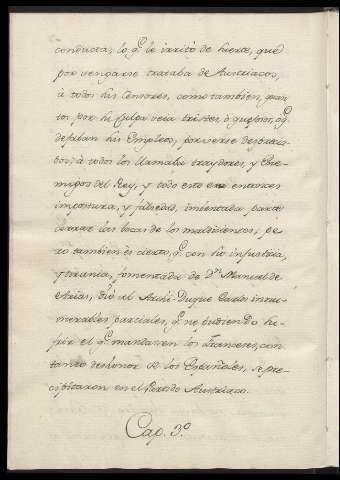 conducta, lo q.e le irritò de suerte, que
por vengarse trataba de Austriacos,
à todos sus Censores, como tambien, quan
tos por su Culpa veia tristes, ò quejosos, ò q.e
dejaban sus Empleos, por verse desbalis-
dos; à todos los llamaba traydores, y Ene-
migos del Rey, y todo esto era entonces
impostura, y falsedad, intentaba para
cerrar las bocas de los maldicientes, pe
ro tambien ès cierto, q.e con su injusticia,
y tirania, fomentada de D.n Manuel de
Arias, diò al Archi-Duque Carlos innu-
merables parciales, q.e no pudiendo su-
frir el q.e mandasen los Franceses, con
tanto deshonor de los Españoles, se pre-
cipitaron en el Partido Austriaco.
Cap. 3.o